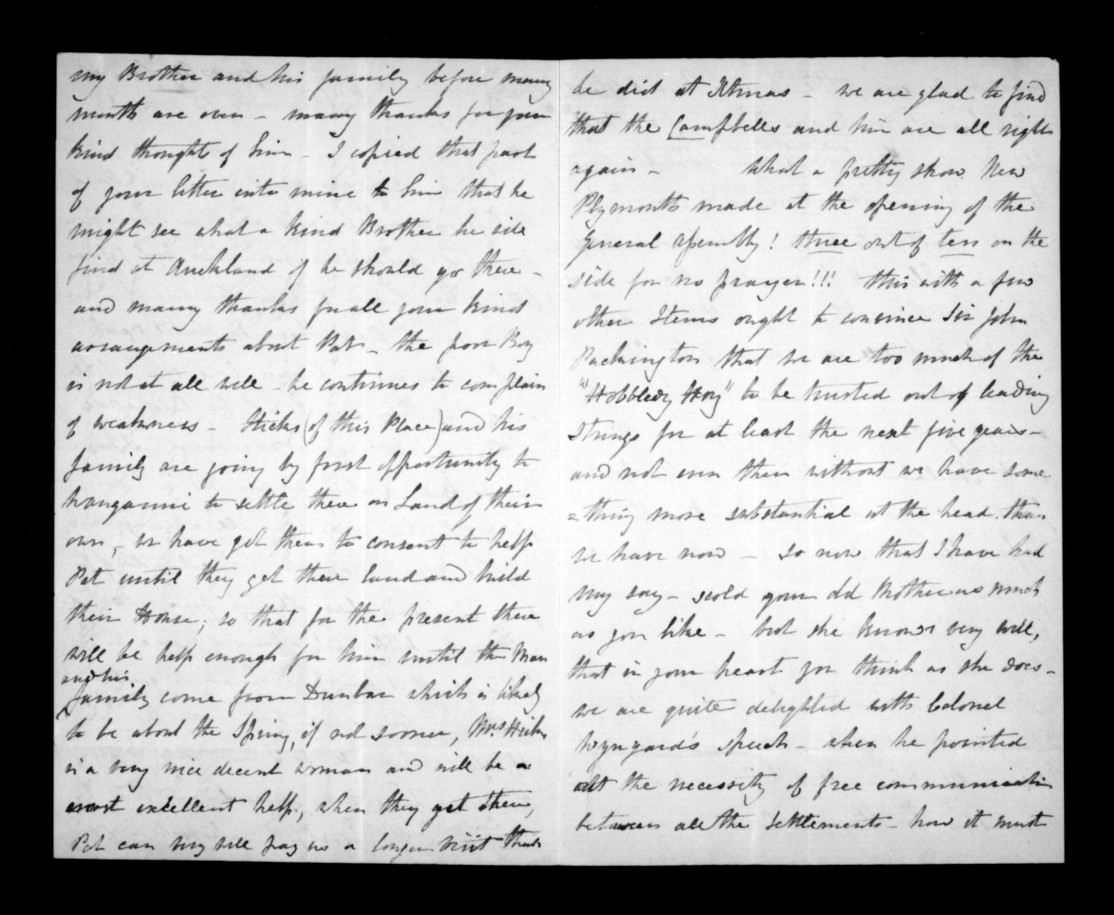 my Brother and his family before many
months are over - many thanks for your
kind thought of him - I copied that part
of your letter into mine to him that he
might see what a kind Brother he will
find at Auckland if he should go there -
and many thanks for all your kind
arrangements about Pat - the poor Boy
is not at all well - he continues to complain
of weakness - Hicks (of this Place) and his
family are going by first opportunity to
Wanganui to settle there on Land of their
own, we have got them to consent to help
Pet until they get their land and build
their House, so that for the present there
will be help enough for him until the Man
and his
family come from Dunbar which is likely
to be about the Spring, if not sooner, Mrs Hicks
is a very nice decent woman and will be a
most excellent help, when they get there,
Pet can very well pay us a longer visit than
he did at Xtmas - we are glad to find
that the Campbells and him are all right
again - what a pretty show New
Plymouth made at the opening of the
General Assembly! three out of ten on the
side for no prayer!!! this with a few
other Items ought to convince Sir John
Packington that we are too much of the
"Hobbledy Hoy" to be trusted out of leading
strings for at least the next five years -
and not even then without we have some
=thing more substantial at the head than
we have now - so now that I have had
my say - scold your old Mother as much
as you like - but she knows very well,
that in your heart you think as she does -
we are quite delighted with Colonel
Wynyard's speech - when he pointed
out the necessity of free communication
between all the settlements - how it must